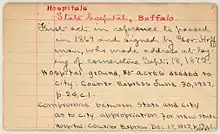 Hospitals
State Hospital, Buffalo.
First act in reference to passed
in 1869 and signed by Gov. Hoff
man, who made address at lay
ing of cornerstone Sept. 18, 1872
Hospital ground, 85 acres deeded to
City. Courier Express June 30, 1927,
p.24, c.1.
Compromise between State and City
as to City appropriation for new State
Hospital: Courier Express Dec. 17, 1927, p.